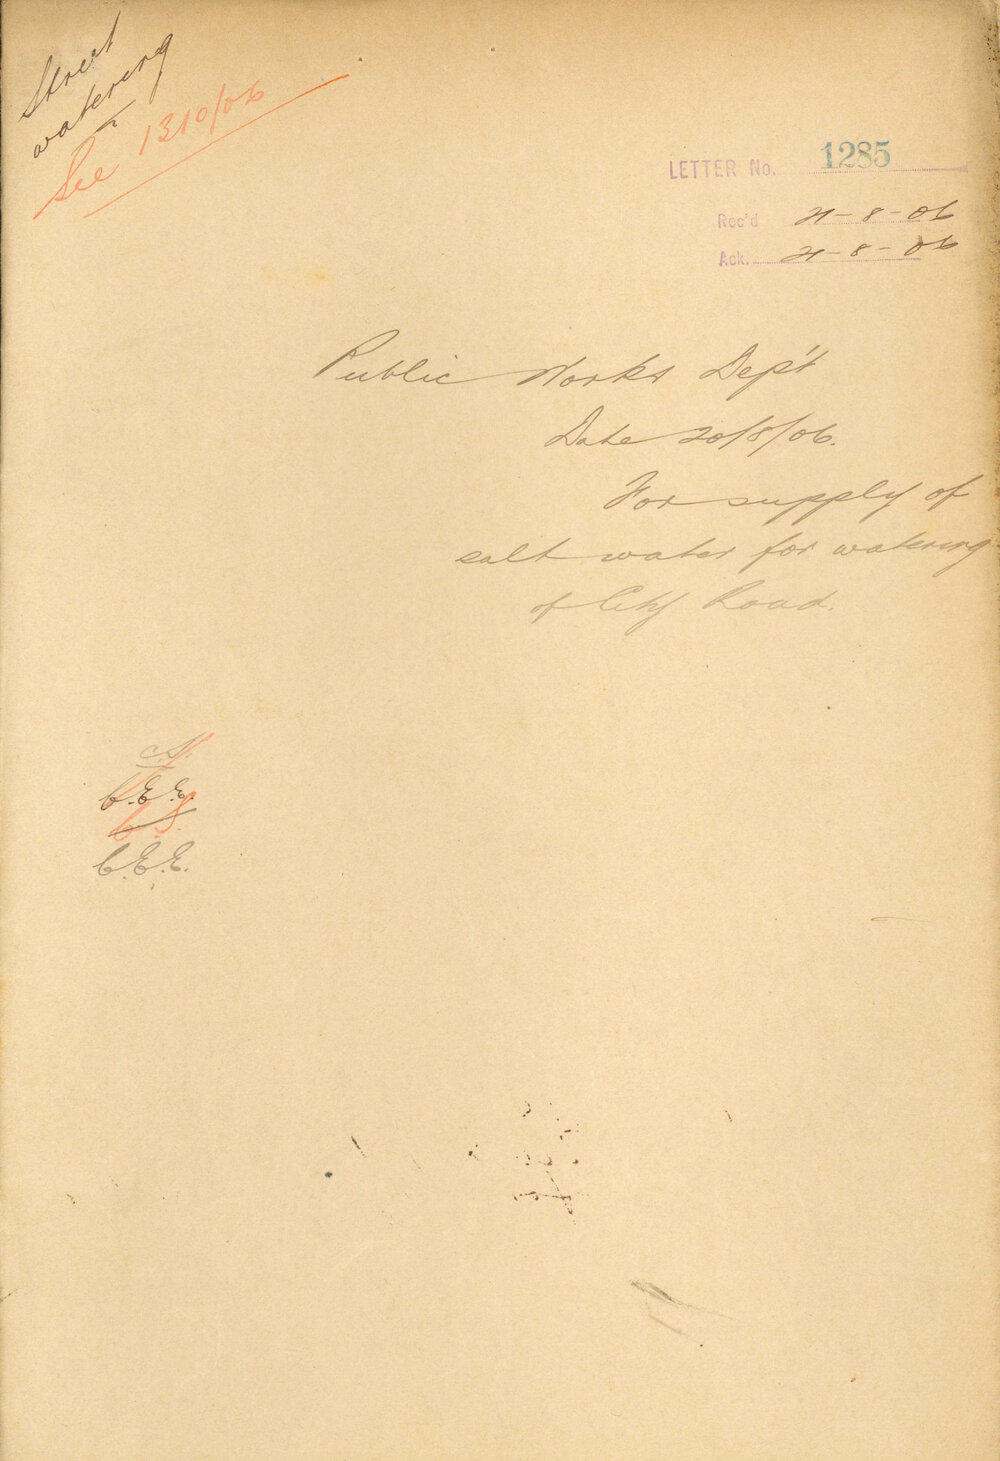 Street
watering
See 1310/06
LETTER No. 1285
Rec'd 21-8-06
Ack. 21-8-06
Public Works Dep't
Date 20/8/06.
For supply of
salt water for watering
of City Road.
C.S.
C.E.E.
C.S.
C.E.E.